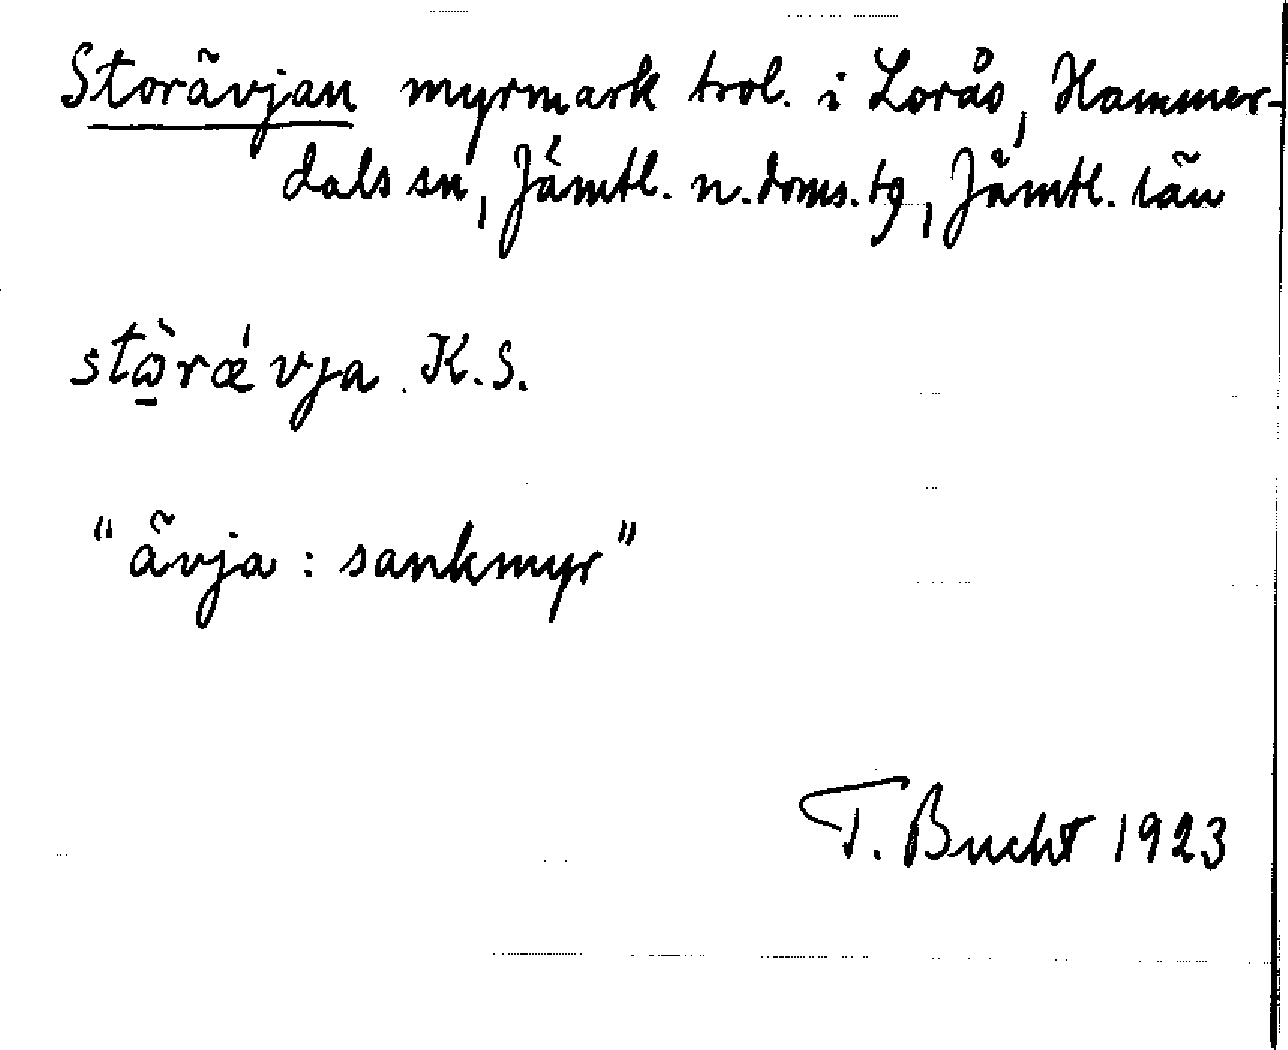 Storävjan myrmark trol. i Lorås, Hammer-
dals sn, Jämtl. n. doms. tg, Jämtl. län
stὼ̲rǽvja K.S.
"ävja : sankmyr"
T. Bucht 1923